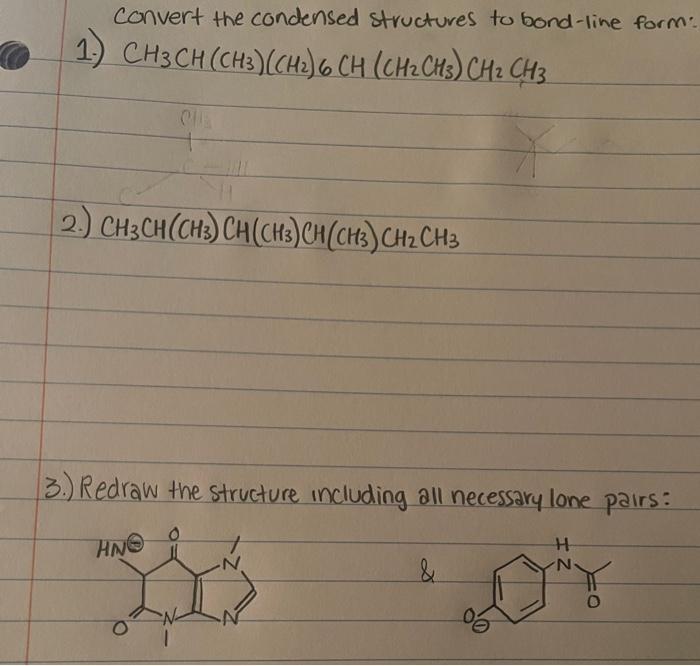 Convert the condensed structures to bond-line form:
1.) CH3CH(CH3)(CH2)6CH(CH2CH3)CH2CH3
CH3
C
H
C
2.) CH3CH(CH3)CH(CH3)CH(CH3)CH2CH3
3.) Redraw the structure including all necessary lone pairs:
HN⊖ O N & H N
O N N O⊖ O